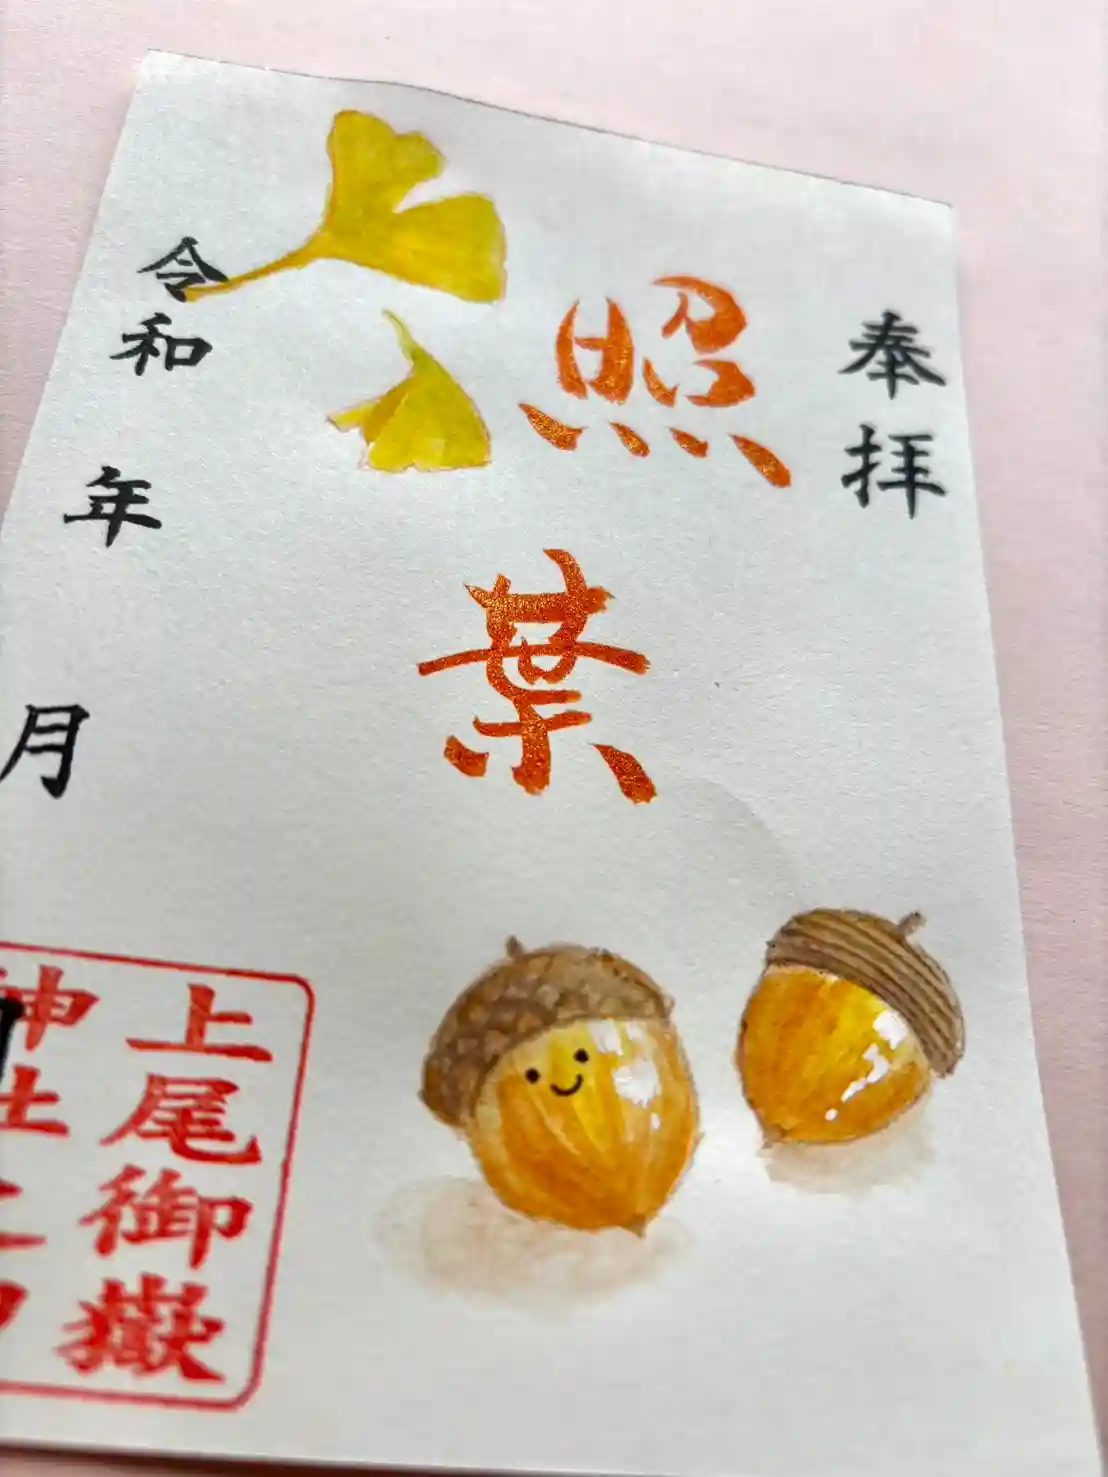 奉拝
照葉
令和 年 月
上尾御嶽
神社之印